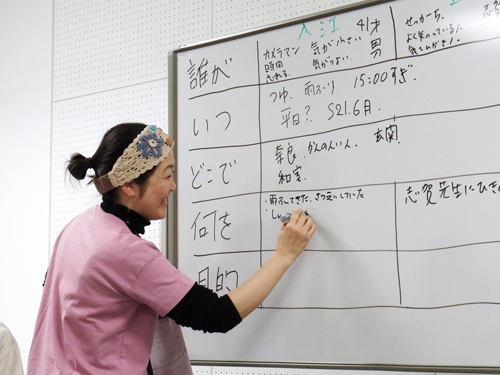 入江 41才
誰が カメラマン 気が小さい 男
時間 気がつよい
せっかち
よく笑っている
いつ つゆ、雨ふり 15:00すぎ
平日? S21.6月
どこで 奈良、かんのんいん、玄関
和室
何を ・雨ふってきた、さつえいしていた
志賀先生にひき
目的